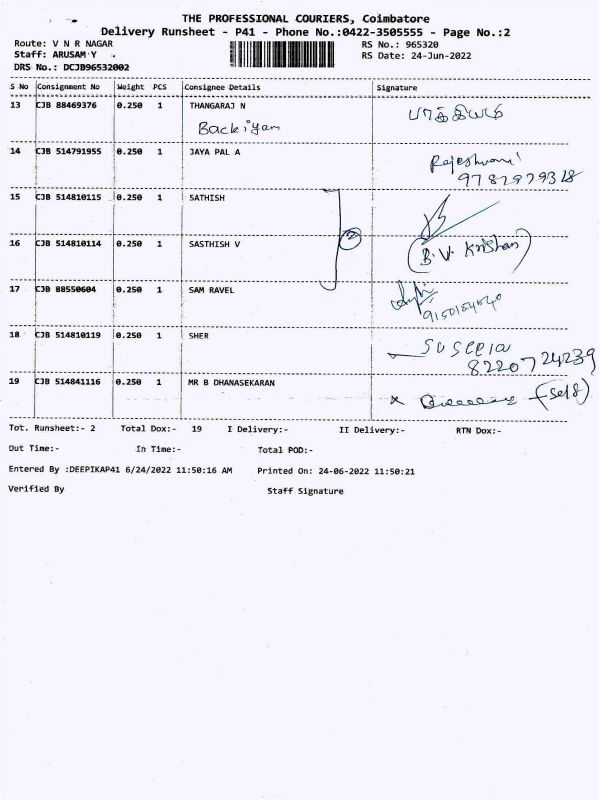 THE PROFESSIONAL COURIERS, Coimbatore
Delivery Runsheet - P41 - Phone No.:0422-3505555 - Page No.:2
Route: V N R NAGAR RS No.: 965320
Staff: ARUSAM Y RS Date: 24-Jun-2022
DRS No.: DCJB96532002
S No Consignment No Weight PCS Consignee Details Signature
13 CJB 88469376 0.250 1 THANGARAJ N
Backiyam பாக்கியம்
14 CJB 514791955 0.250 1 JAYA PAL A Rajeshwari
15 CJB 514810115 0.250 1 SATHISH
2
16 CJB 514810114 0.250 1 SASTHISH V (B.V. Krishan)
17 CJB 88550604 0.250 1 SAM RAVEL
18 CJB 514810119 0.250 1 SHER
8220724239
19 CJB 514841116 0.250 1 MR B DHANASEKARAN
x (self)
Tot. Runsheet:- 2 Total Dox:- 19 I Delivery:- II Delivery:- RTN Dox:-
Out Time:- In Time:- Total POD:-
Entered By :DEEPIKAP41 6/24/2022 11:50:16 AM Printed On: 24-06-2022 11:50:21
Verified By Staff Signature